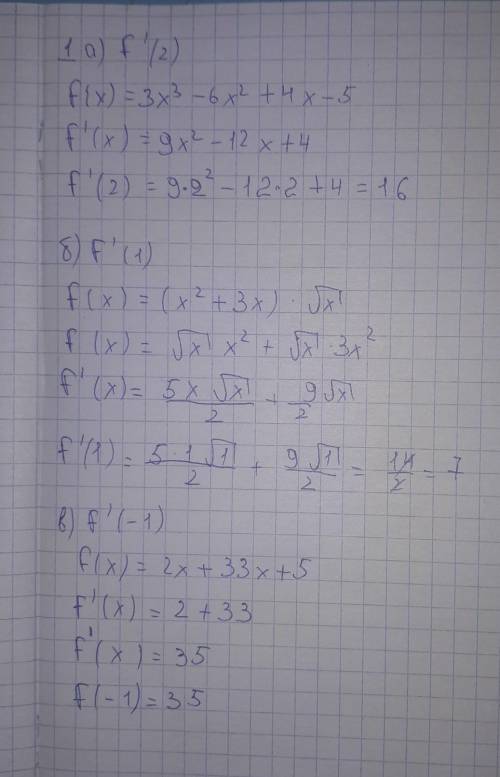 1 а) f'(2)
f(x) = 3x³ - 6x² + 4x - 5
f'(x) = 9x² - 12x + 4
f'(2) = 9·2² - 12·2 + 4 = 16
б) f'(1)
f(x) = (x² + 3x) · √x
f(x) = √x x² + √x · 3x²
f'(x) = 5x√x/2 + 9√x/2
f'(1) = 5·1√1/2 + 9√1/2 = 14/2 = 7
в) f'(-1)
f(x) = 2x + 33x + 5
f'(x) = 2 + 33
f'(x) = 35
f(-1) = 35